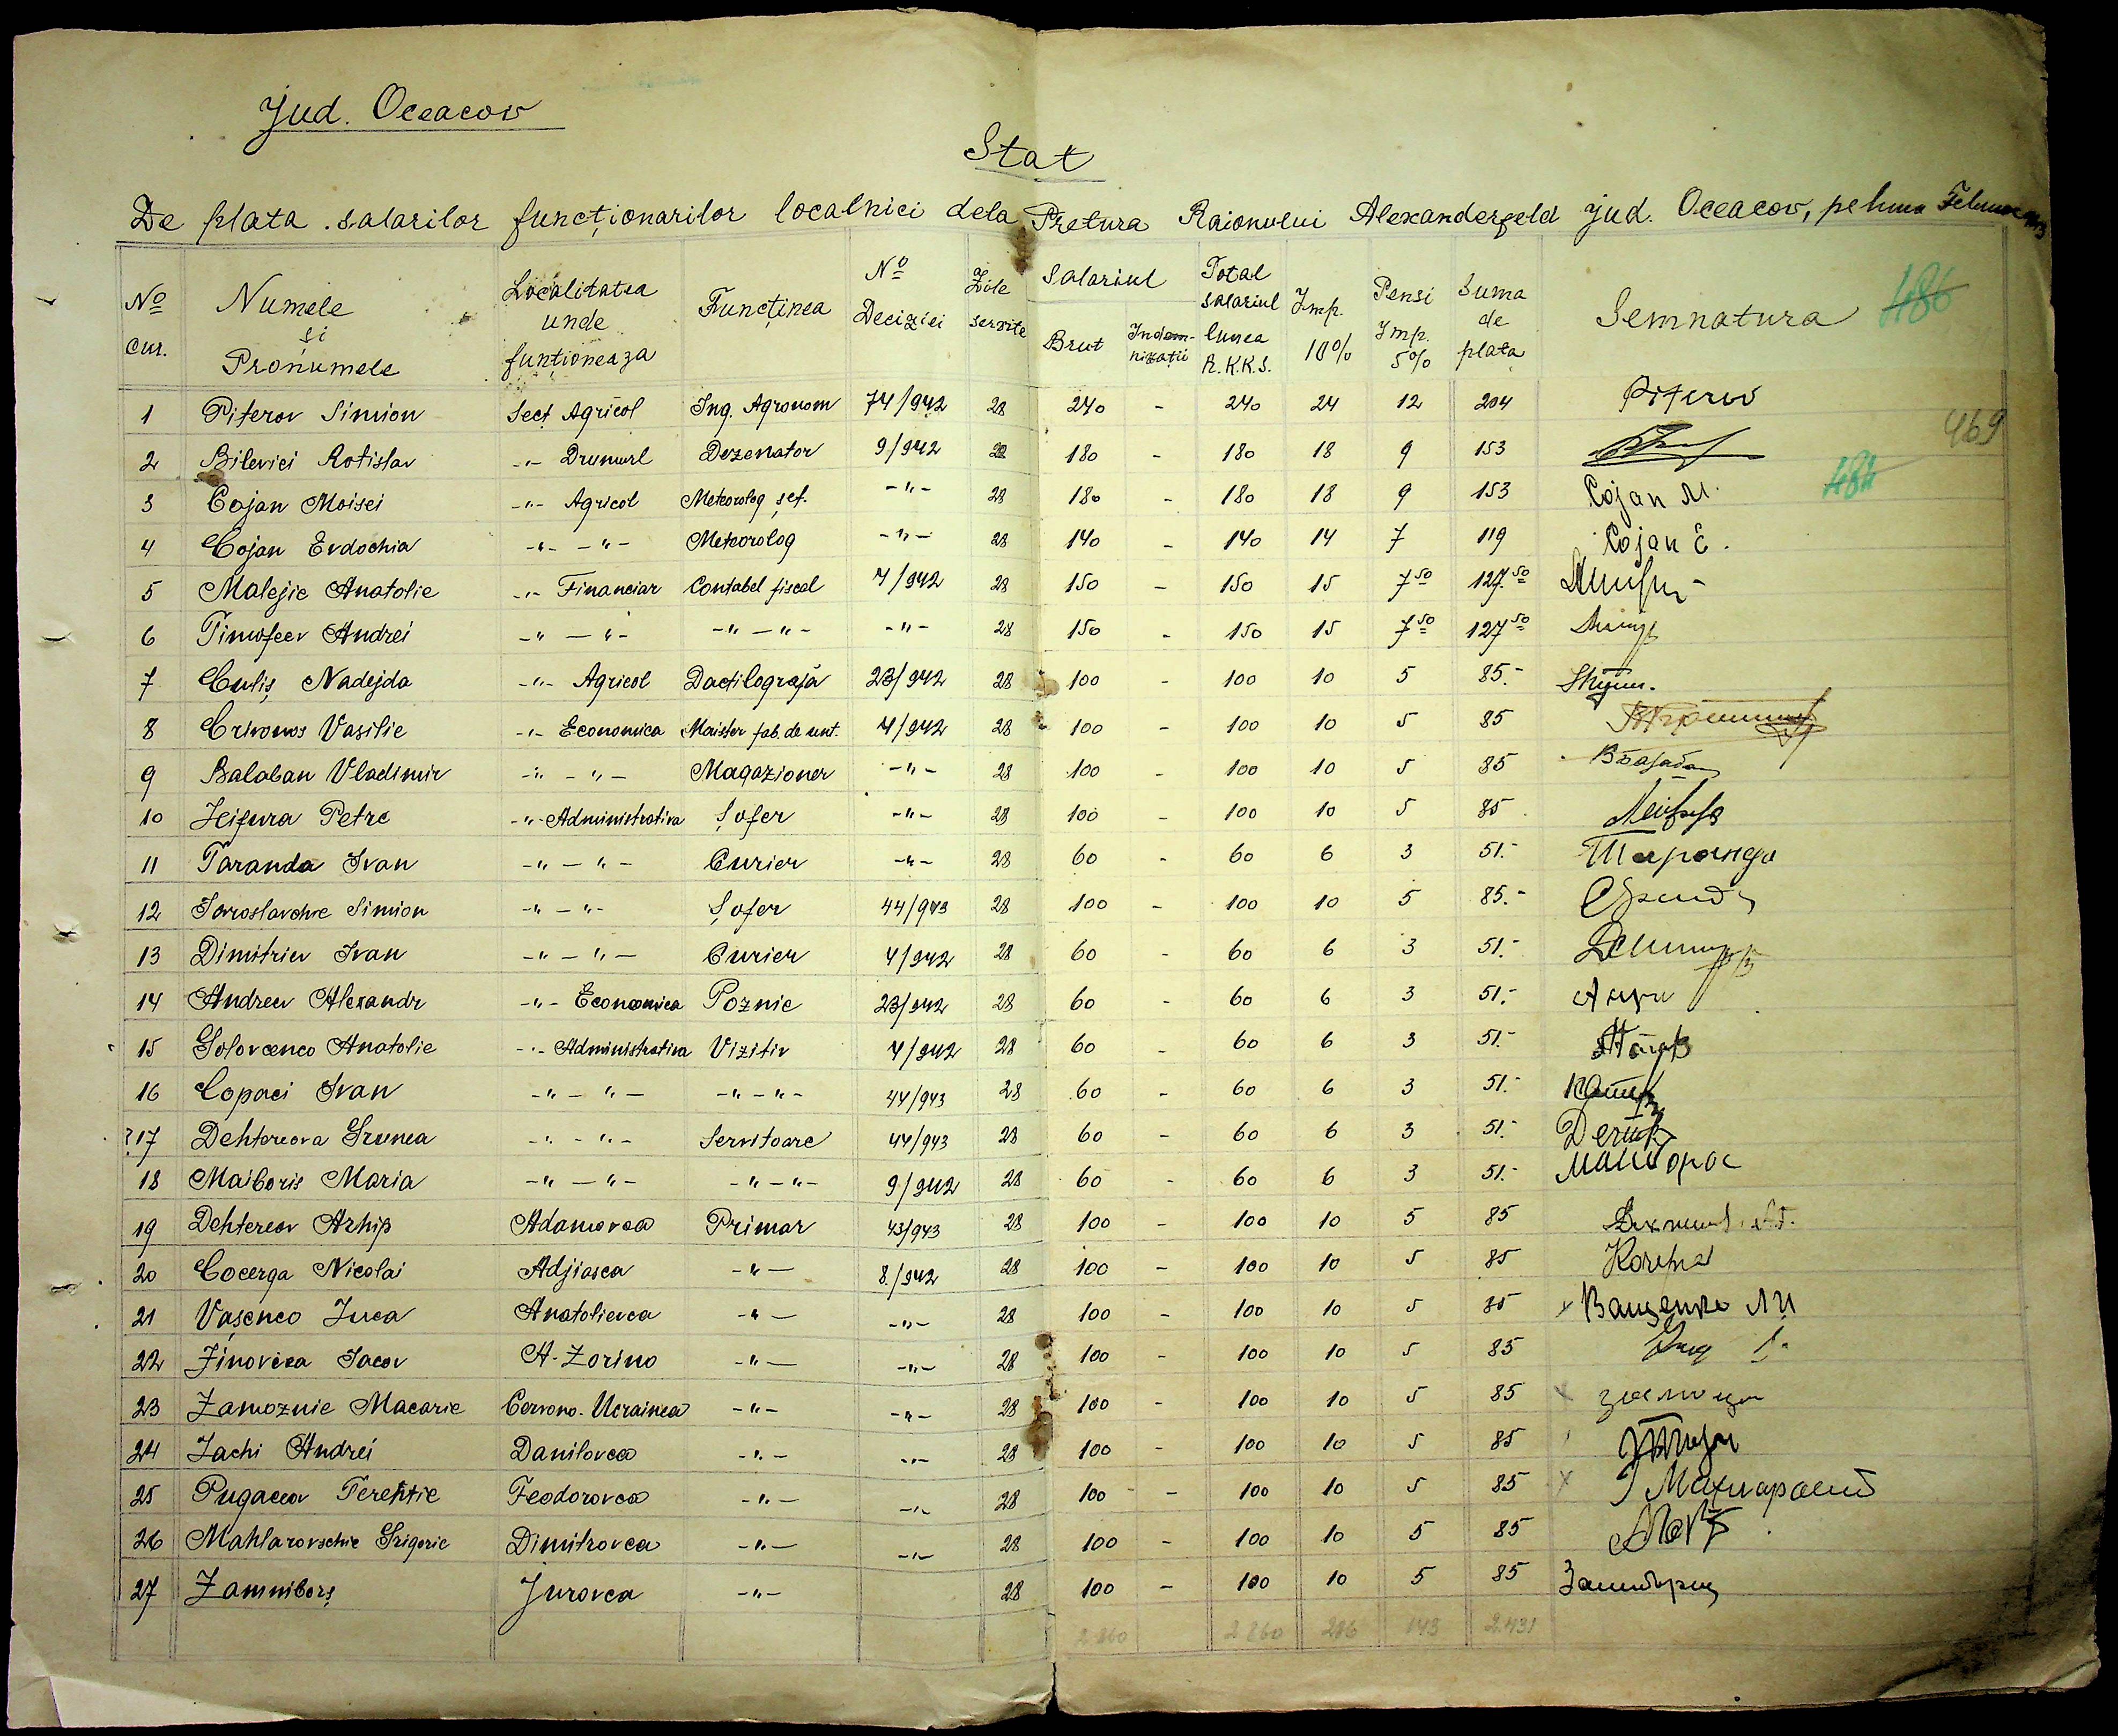 Jud. Oceacov
Stat
De plata salarilor funcționarilor localnici dela Pretura Raionului Alexanderfeld jud. Oceacov, pe luna
№ cur. Numele și Pronumele Localitatea unde funționeaza Funcținea № Deciziei Zile servite Salariul Brut Indemnizații Total salariul lunea R.K.K.S. Imp. 10% Pensi Imp. 5% Suma de plata Semnatura 486
1 Piterov Simion Sect Agricol Ing. Agronom 74/942 28 240 - 240 24 12 204
469
2 Bilevici Rotislav -"- Drumurl Dezenator 9/942 28 180 - 180 18 9 153
484
3 Cojan Moisei -"- Agricol Meteorolog șef. -"- 28 180 - 180 18 9 153 Cojan M.
4 Cojan Evdochia -"- -"- Meteorolog -"- 28 140 - 140 14 7 119 Cojan E.
5 Malejic Anatolie -"- Financiar Contabel fiscal 7/942 28 150 - 150 15 7 50 127 50
6 Timofeev Andrei -"- -"- -"- -"- -"- 28 150 - 150 15 7 50 127 50
7 Culiș Nadejda -"- Agricol Dactilografa 23/942 28 100 - 100 10 5 85.-
8 Crivonos Vasilie -"- Economica Maister fab. de unt. 7/942 28 100 - 100 10 5 85
9 Balaban Vladimir -"- -"- Magazioner -"- 28 100 - 100 10 5 85
10 Heifura Petre -"- Administrativa Șofer -"- 28 100 - 100 10 5 85
11 Taranda Ivan -"- -"- Curier -"- 28 60 - 60 6 3 51.-
12 Iaroslavchie Simion -"- -"- Șofer 44/943 28 100 - 100 10 5 85.-
13 Dimitriev Ivan -"- -"- Curier 7/942 28 60 - 60 6 3 51.-
14 Andreev Alexandr -"- Economica Poznic 23/942 28 60 - 60 6 3 51.-
15 Golovcenco Anatolie -"- Administrativa Vizitiv 7/942 28 60 - 60 6 3 51.-
16 Copaci Ivan -"- -"- -"- -"- 44/943 28 60 - 60 6 3 51.-
?17 Dehtereova Grunea -"- -"- Servitoare 44/943 28 60 - 60 6 3 51.-
18 Maiboris Maria -"- -"- -"- -"- 9/942 28 60 - 60 6 3 51.-
19 Dehtereov Arhip Adamovca Primar 43/943 28 100 - 100 10 5 85
20 Cocerga Nicolai Adjiasca -"- 8/942 28 100 - 100 10 5 85
21 Vașenco Luca Anatolievca -"- -"- 28 100 - 100 10 5 85 x Ващенко Л И
22 Zinovcea Iacov A-Zorino -"- -"- 28 100 - 100 10 5 85
23 Zamoznie Macarie Cervono-Ucrainca -"- -"- 28 100 - 100 10 5 85 x
24 Zachi Andrei Danilovca -"- -"- 28 100 - 100 10 5 85
25 Pugaceov Terentie Feodorovca -"- -"- 28 100 - 100 10 5 85 x
26 Mahlarovschie Grigorie Dimitrovca -"- -"- 28 100 - 100 10 5 85
27 Zamniborș Jurovca -"- 28 100 - 100 10 5 85
2860 2860 286 143 2431